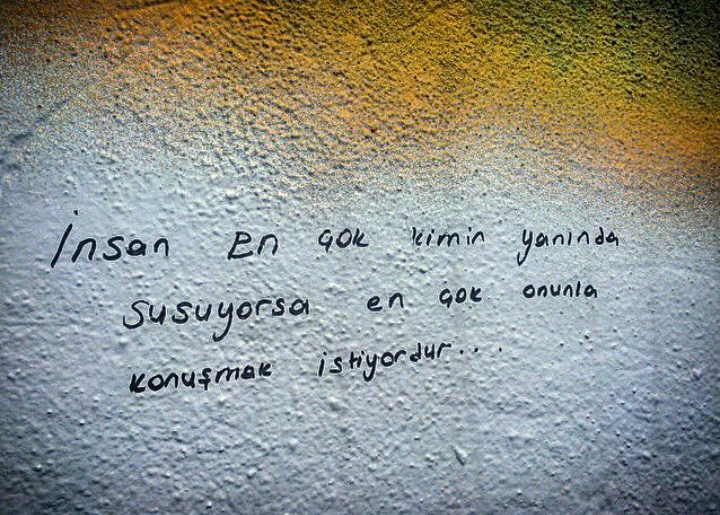 İnsan en çok kimin yanında
susuyorsa en çok onunla
konuşmak istiyordur...